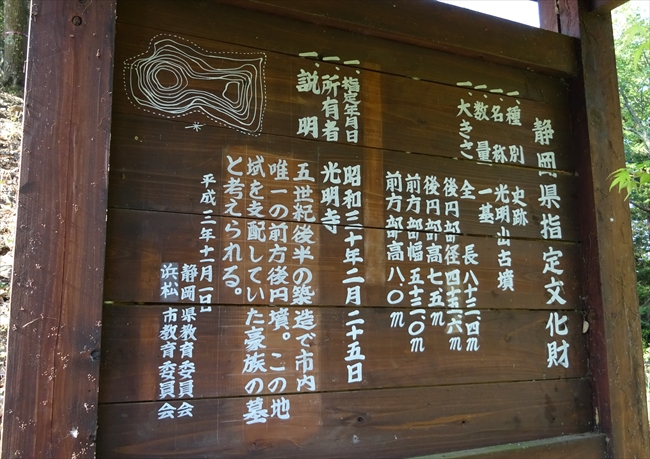 静岡県指定文化財
一、種別 史跡
一、名称 光明山古墳
一、数量 一基
一、大きさ 全長 八十三・四m
後円部径 四十五・六m
後円部高 七・五m
前方部幅 五十三・〇m
前方部高 八・〇m
一、指定年月日 昭和三十年二月二十五日
一、所有者 光明寺
一、説明 五世紀後半の築造で市内
唯一の前方後円墳。この地
域を支配していた豪族の墓
と考えられる。
平成三年十一月一日
静岡県教育委員会
浜松市教育委員会